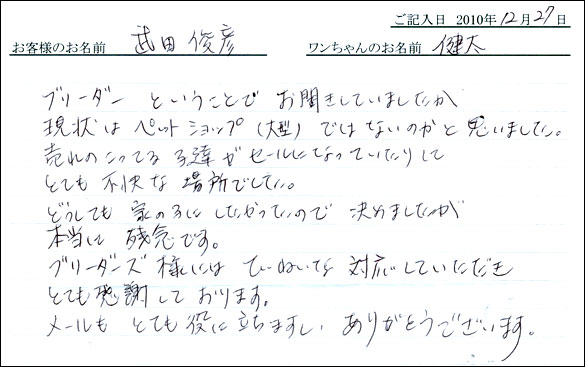 ご記入日 2010年12月27日
お客様のお名前 武田俊彦 ワンちゃんのお名前 健太
ブリーダー ということで お聞きしていましたが
現状は ペットショップ(大型) ではないのかと 思いました。
売れのこってる 子達が セールになっていたりして
とても 不快な 場所でした。
どうしても 家の子に したかったので 決めましたが
本当に 残念です。
ブリーダーズ 様には ていねいな 対応していただき
とても感謝して おります。
メールも とても役に立ちますし、ありがとうございます。